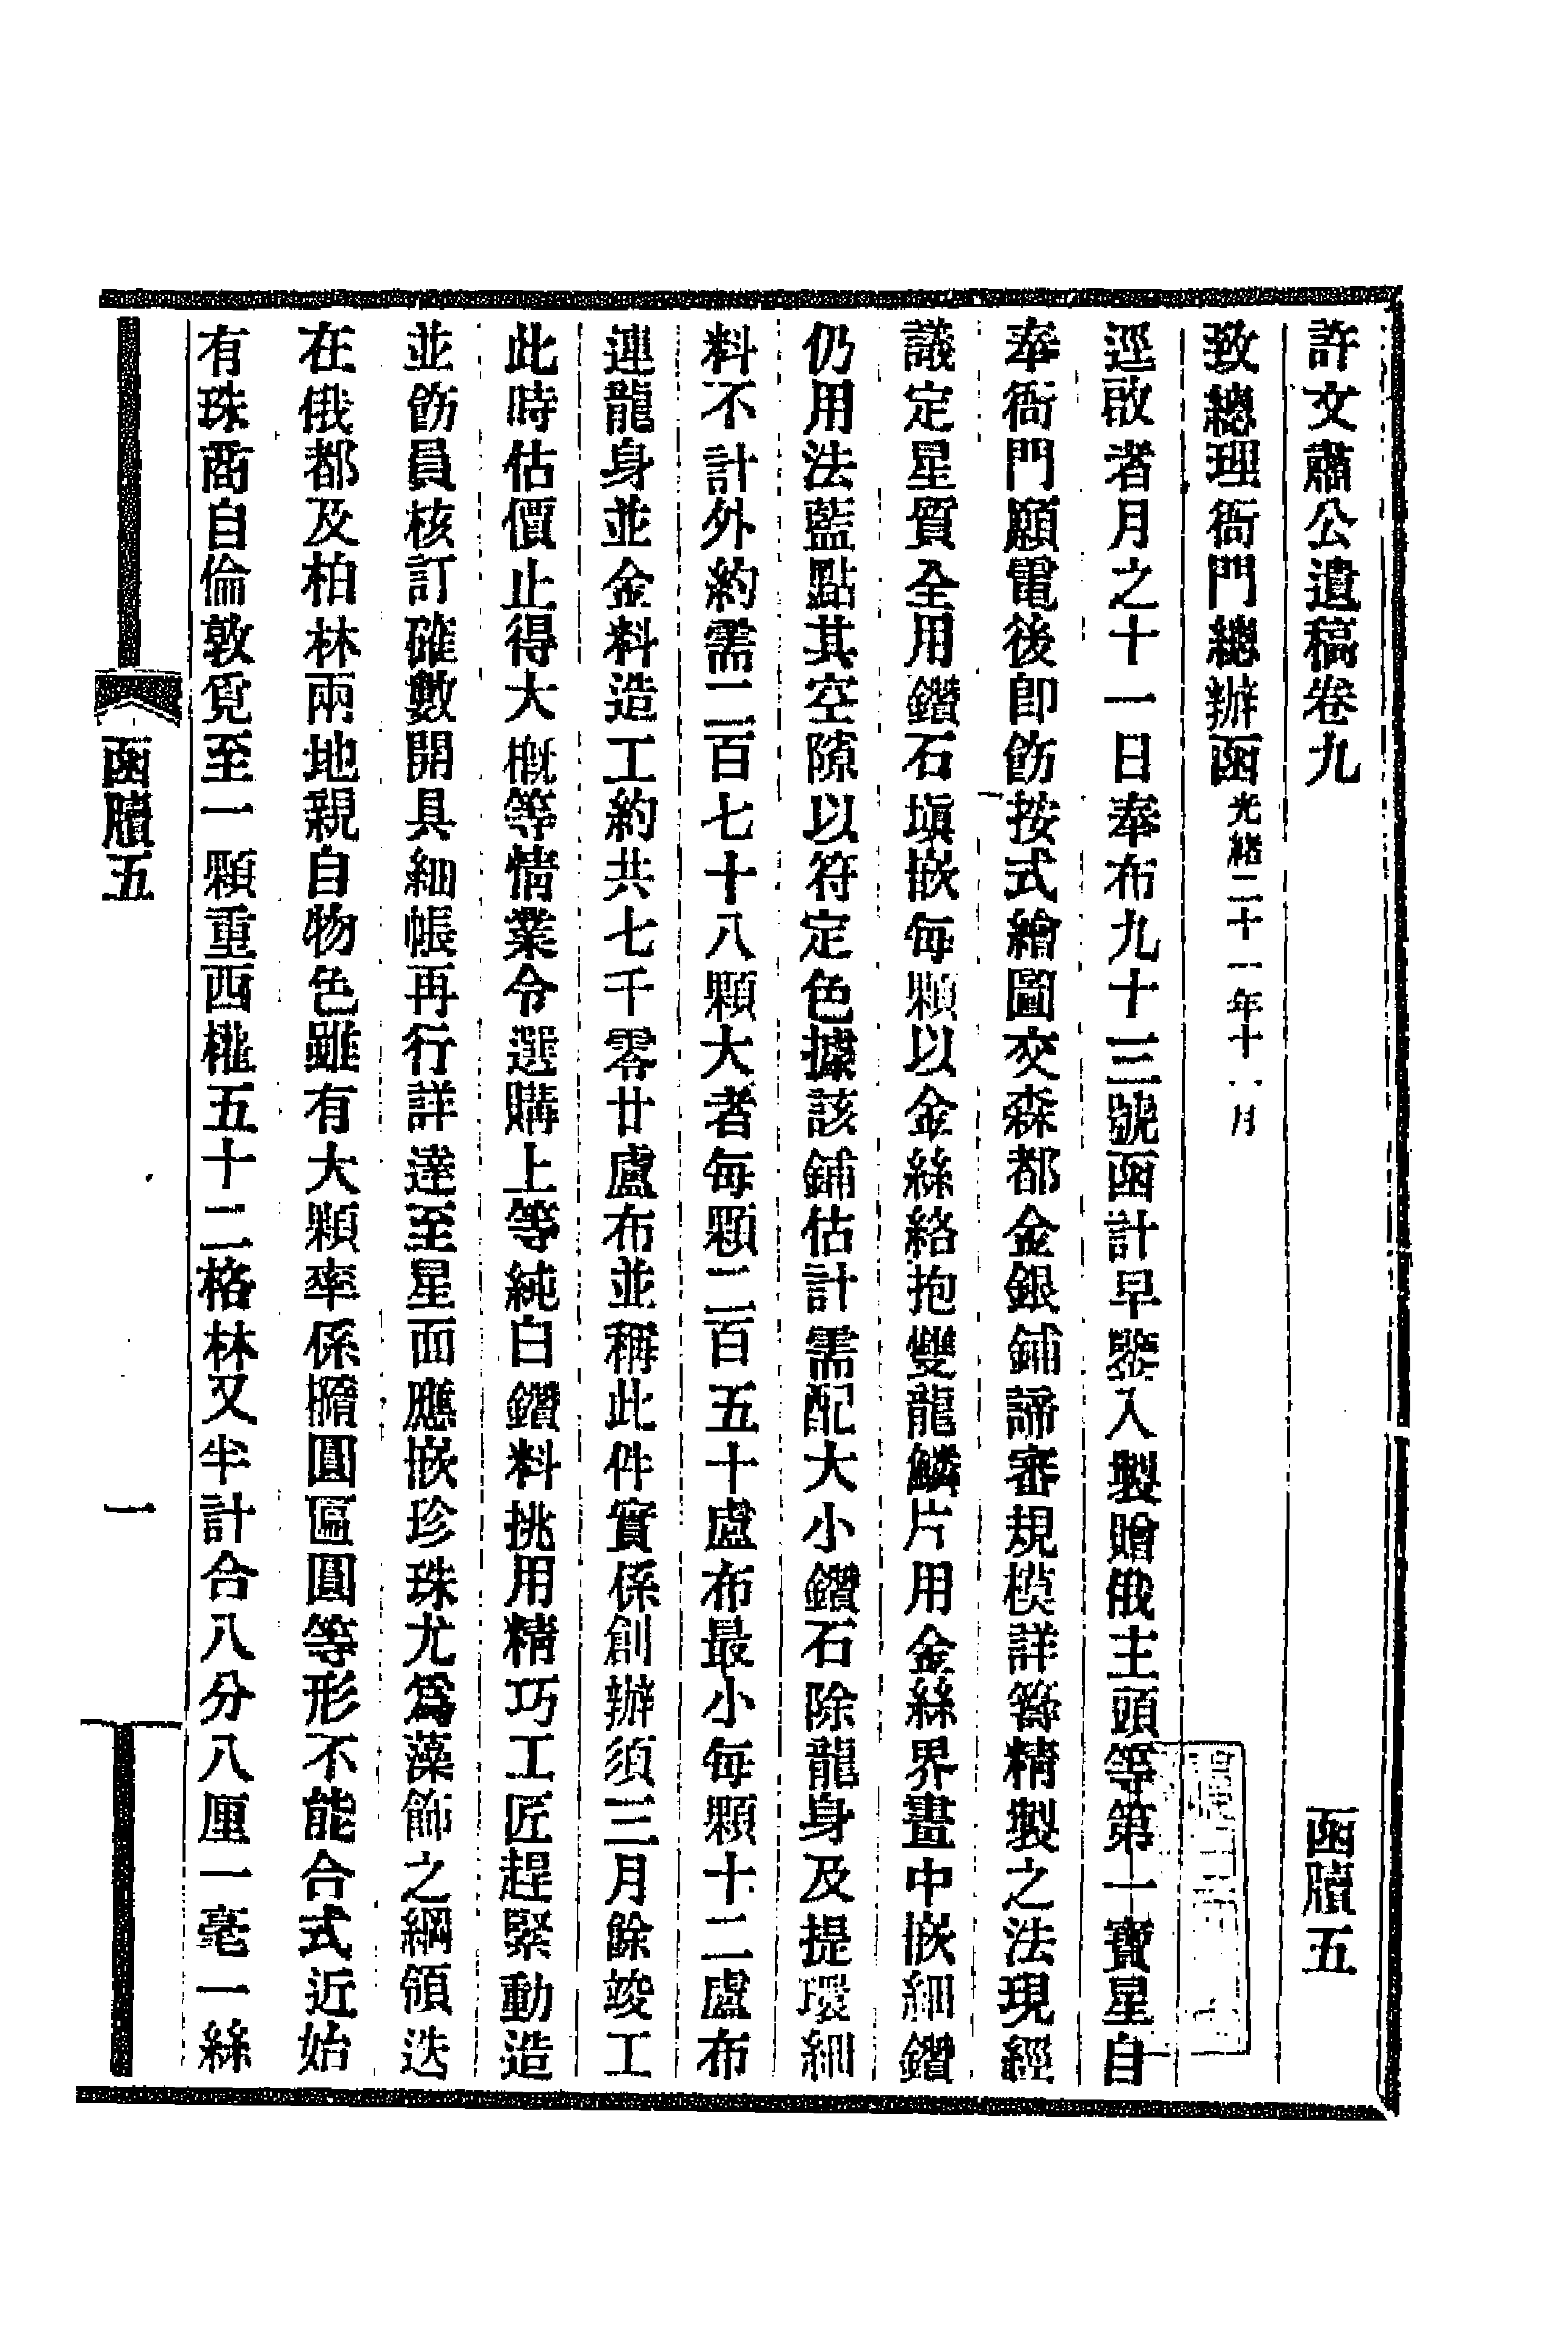 許文肅公遺稿卷九 函牘五
致總理衙門總辦函光緒二十一年十一月
逕啟者月之十一日奉布九十三號函計早鑒入製贈俄主頭等第一寶星自
奉衙門願電後卽飭按式繪圖交森都金銀鋪諦審規模詳籌精製之法現經
議定星質全用鑽石塡嵌每顆以金絲絡抱雙龍鱗片用金絲界畫中嵌細鑽
仍用法藍點其空隙以符定色據該鋪估計需配大小鑽石除龍身及提環細
料不計外約需二百七十八顆大者每顆二百五十盧布最小每顆十二盧布
連龍身並金料造工約共七千零廿盧布並稱此件實係創辦須三月餘竣工
此時估價止得大槪等情業令選購上等純白鑽料挑用精巧工匠趕緊動造
並飭員核訂確數開具細帳再行詳達至星面應嵌珍珠尤爲藻飾之綱領迭
在俄都及柏林兩地親自物色雖有大顆率係橢圓匾圓等形不能合式近始
有珠商自倫敦覓至一顆重西權五十二格林又半計合八分八厘一毫一絲
函牘五
一